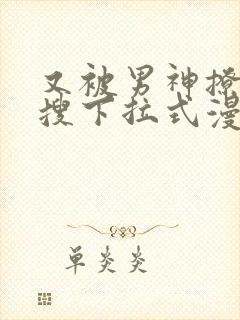 又被男神撩
搜下拉式漫
单炎炎